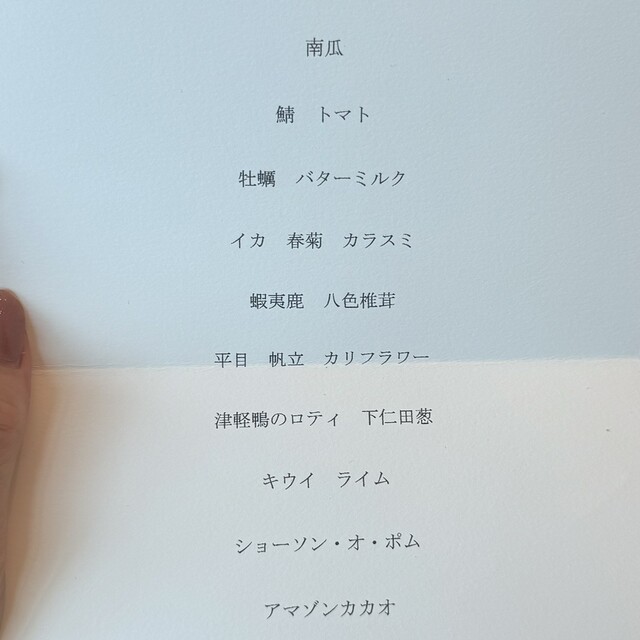 南瓜
鯖　トマト
牡蠣　バターミルク
イカ　春菊　カラスミ
蝦夷鹿　八色椎茸
平目　帆立　カリフラワー
津軽鴨のロティ　下仁田葱
キウイ　ライム
ショーソン・オ・ポム
アマゾンカカオ